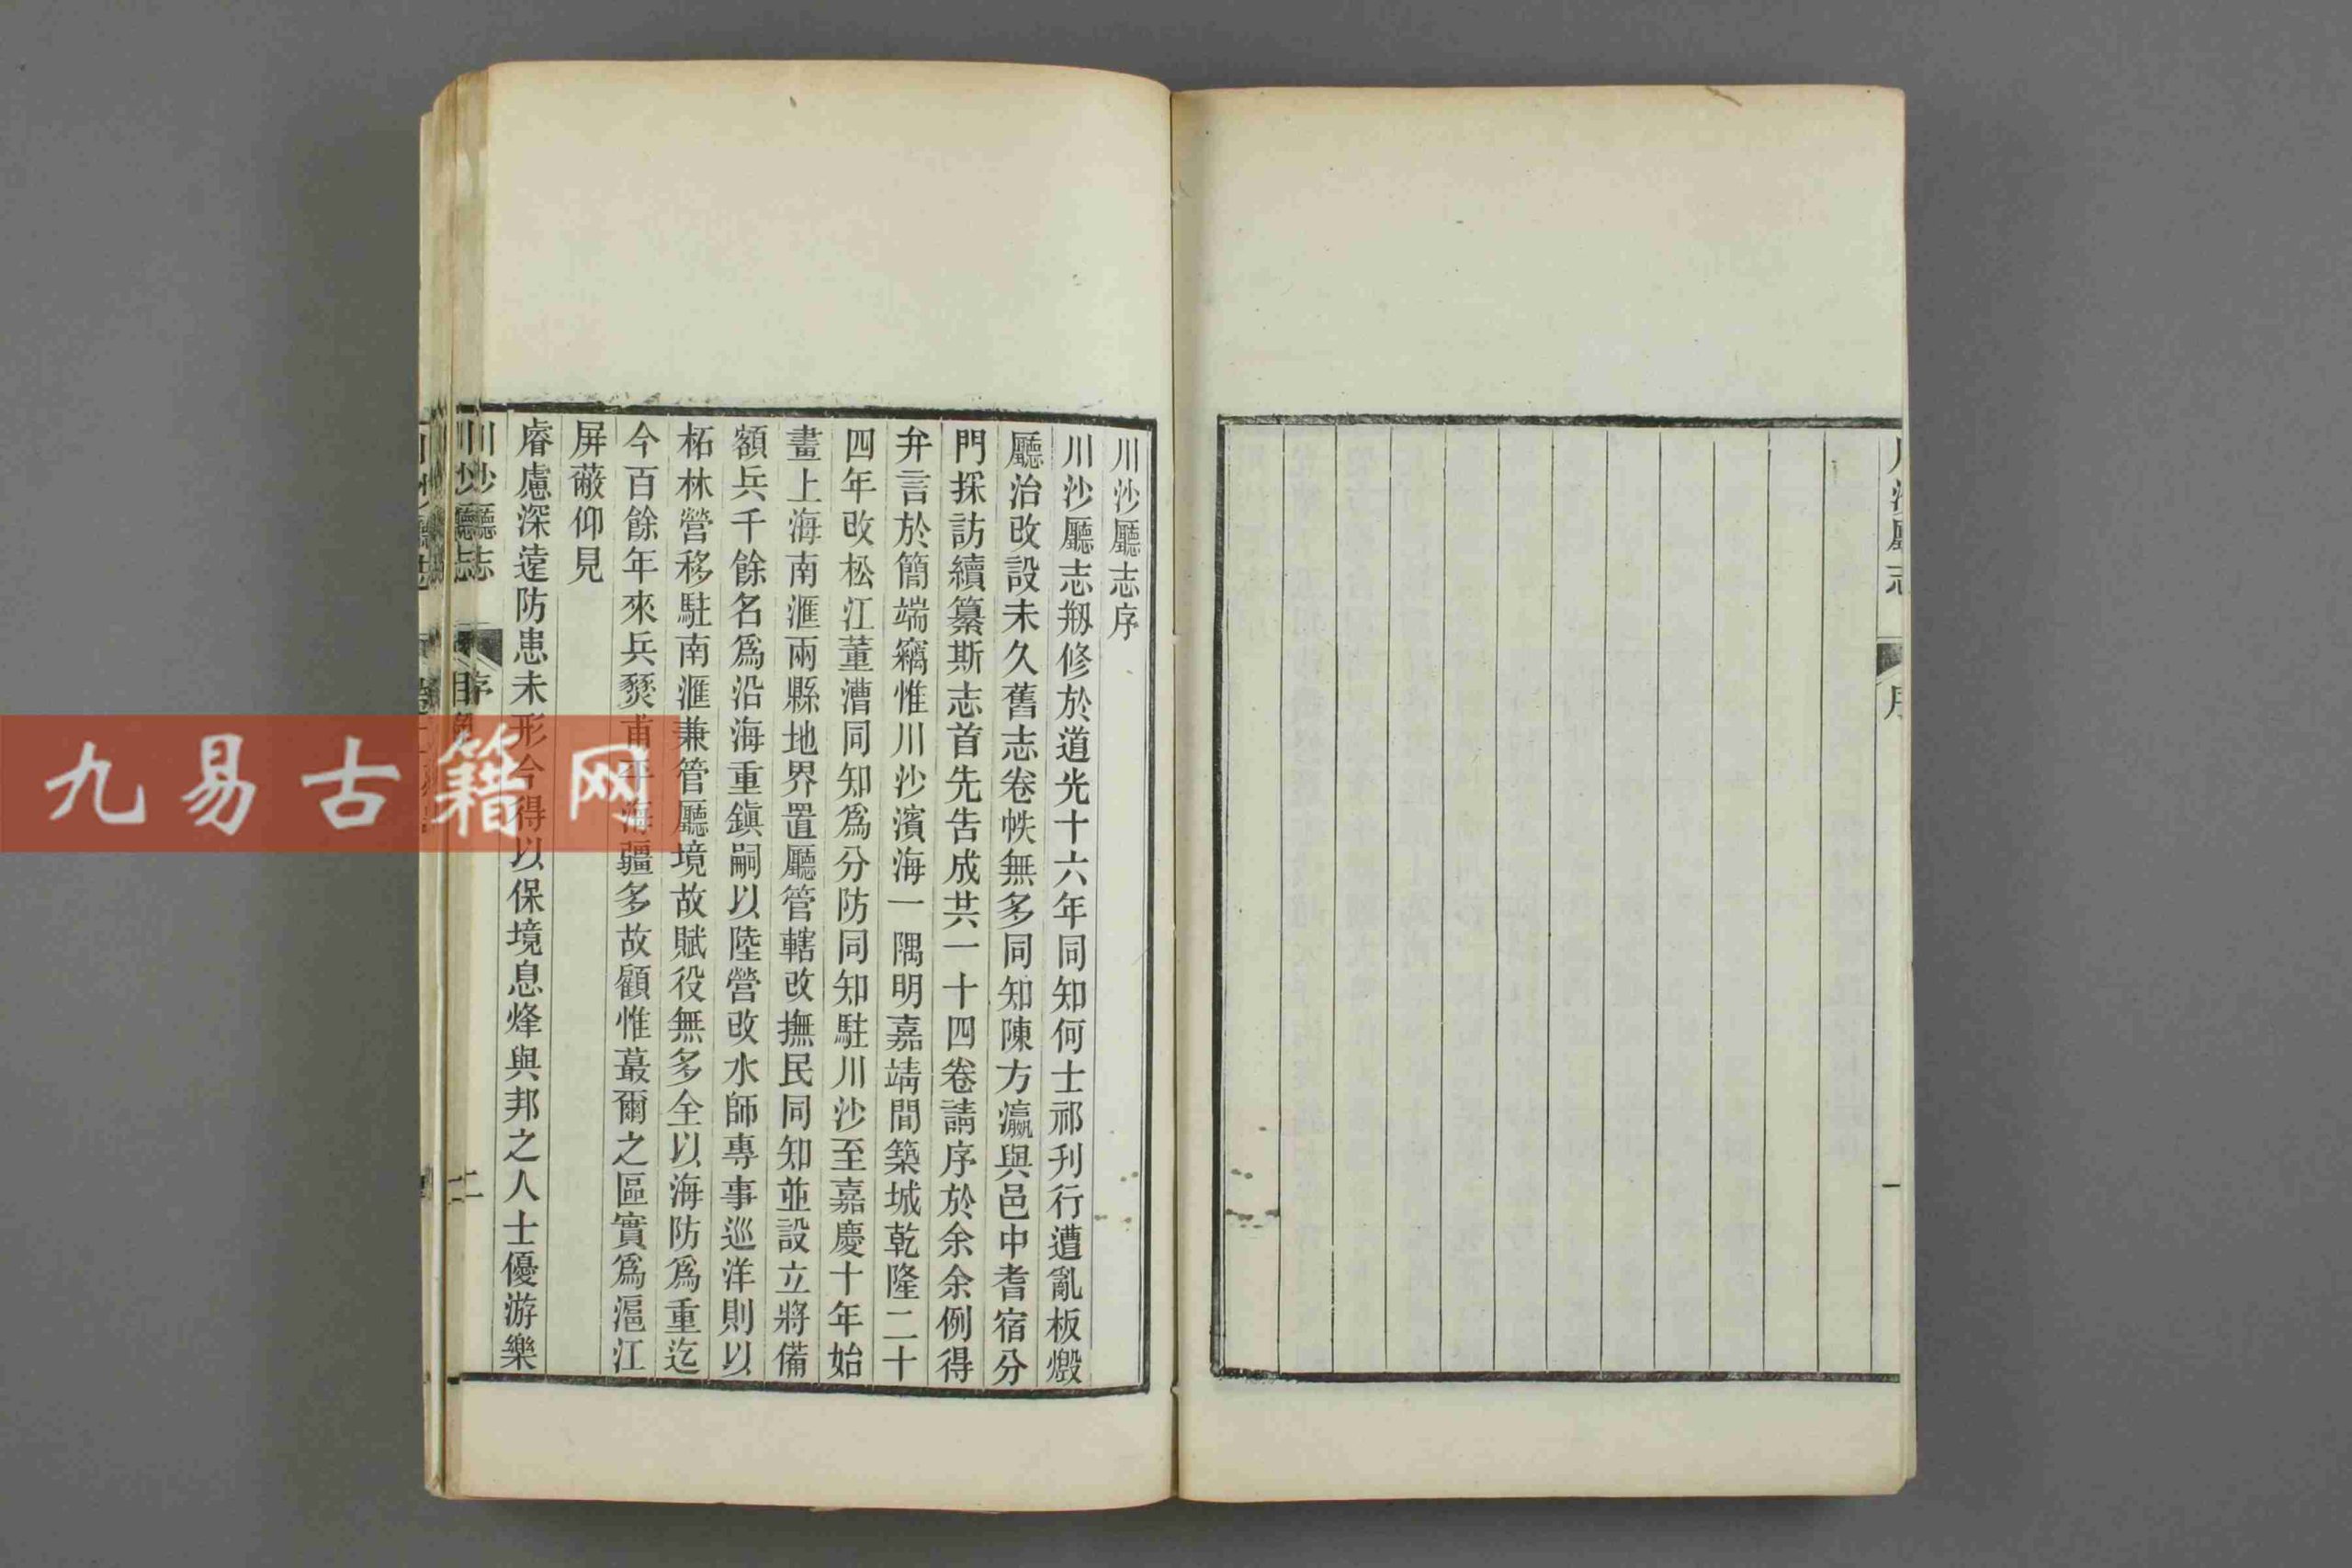 川沙廳志序
川沙廳志刱修於道光十六年同知何士祁刊行遭亂板燬
廳治改設未久舊志卷帙無多同知陳方瀛與邑中耆宿分
門採訪續纂斯志首先告成共一十四卷請序於余余例得
弁言於簡端竊惟川沙濱海一隅明嘉靖間築城乾隆二十
四年改松江董漕同知為分防同知駐川沙至嘉慶十年始
畫上海南滙兩縣地界置廳管轄改撫民同知並設立將備
額兵千餘名為沿海重鎮嗣以陸營改水師專事巡洋則以
柘林營移駐南滙兼管廳境故賦役無多全以海防為重迄
今百餘年來兵燹甫平海疆多故顧惟蕞爾之區實為滬江
屏蔽仰見
睿慮深遠防患未形今得以保境息烽與邦之人士優游樂
川沙廳志
序
二
川沙廳志
目
川沙廳志
序
一
九易古籍网